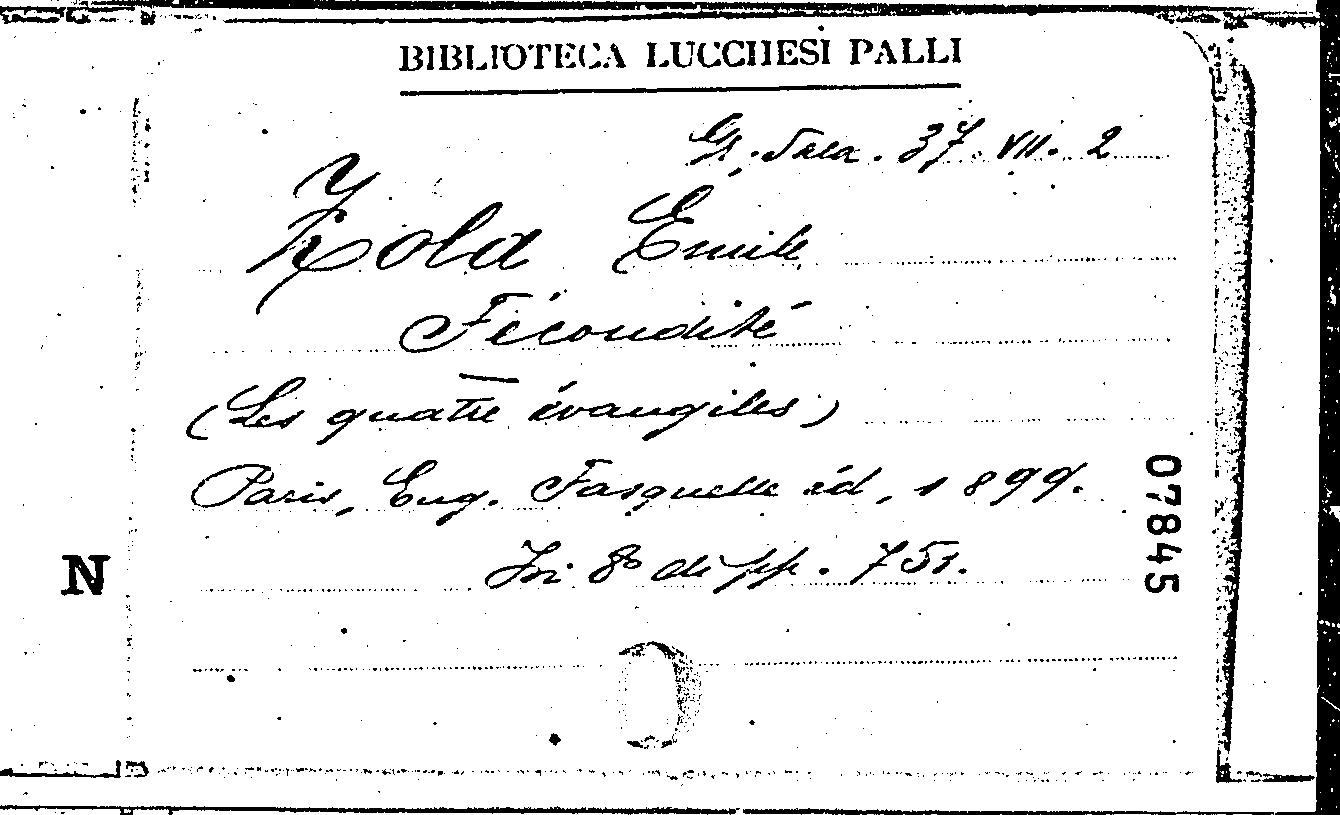 BIBLIOTECA LUCCHESI PALLI
Gr. Sala. 37. VII. 2
Zola Emile
Fécondité
(Les quatre évangiles)
Paris, Eug. Fasquelle éd, 1899.
In 8º di pp. 751.
07845
N